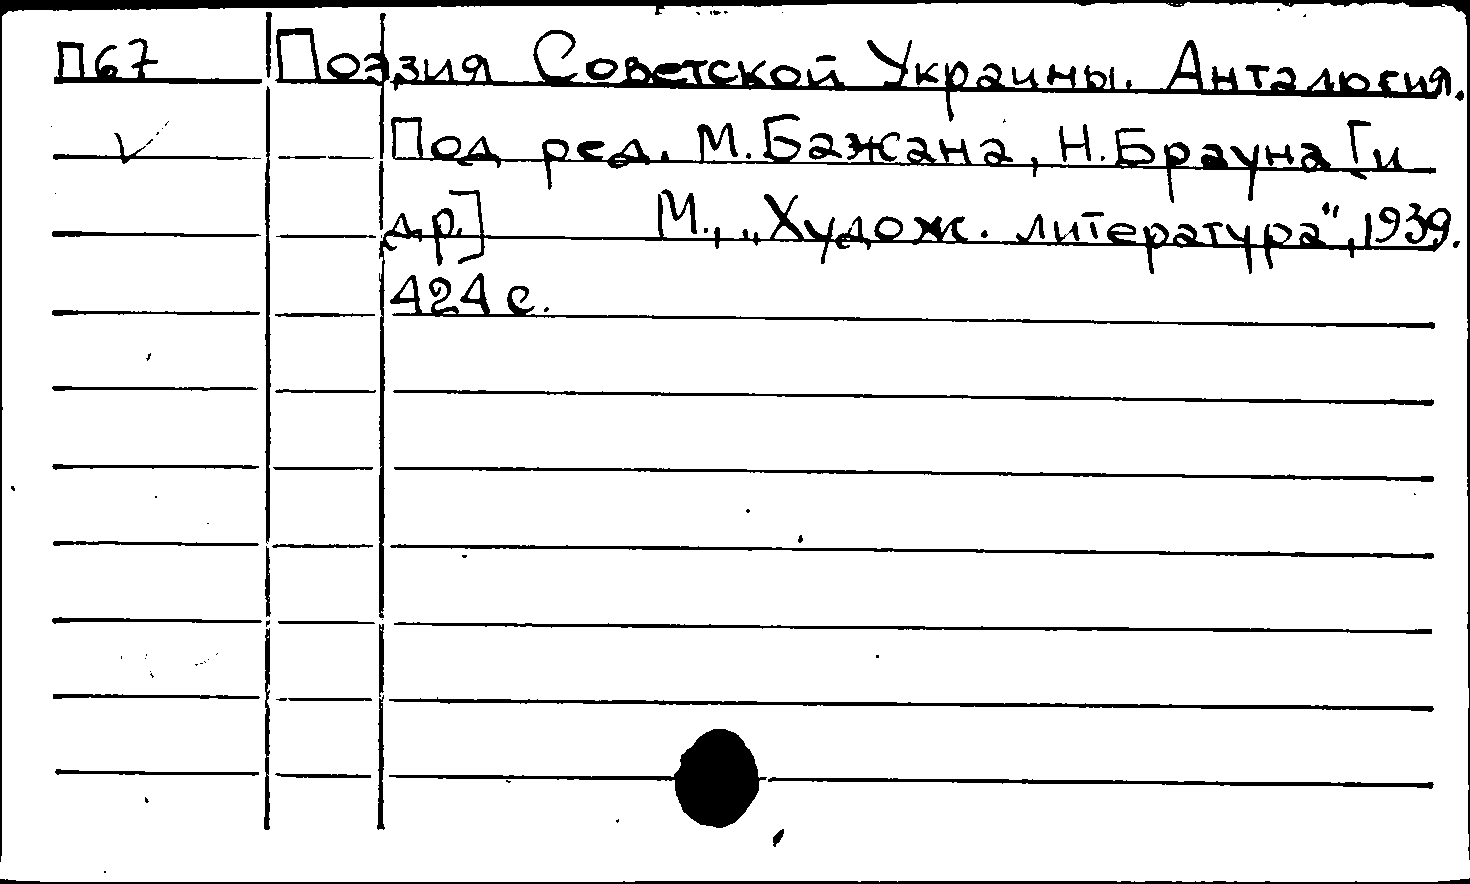 П67 Поэзия Советской Украины. Анталогия.
Под ред. М. Бажана, Н. Брауна [и
др.] М., „Худож. литература“, 1939.
424 с.